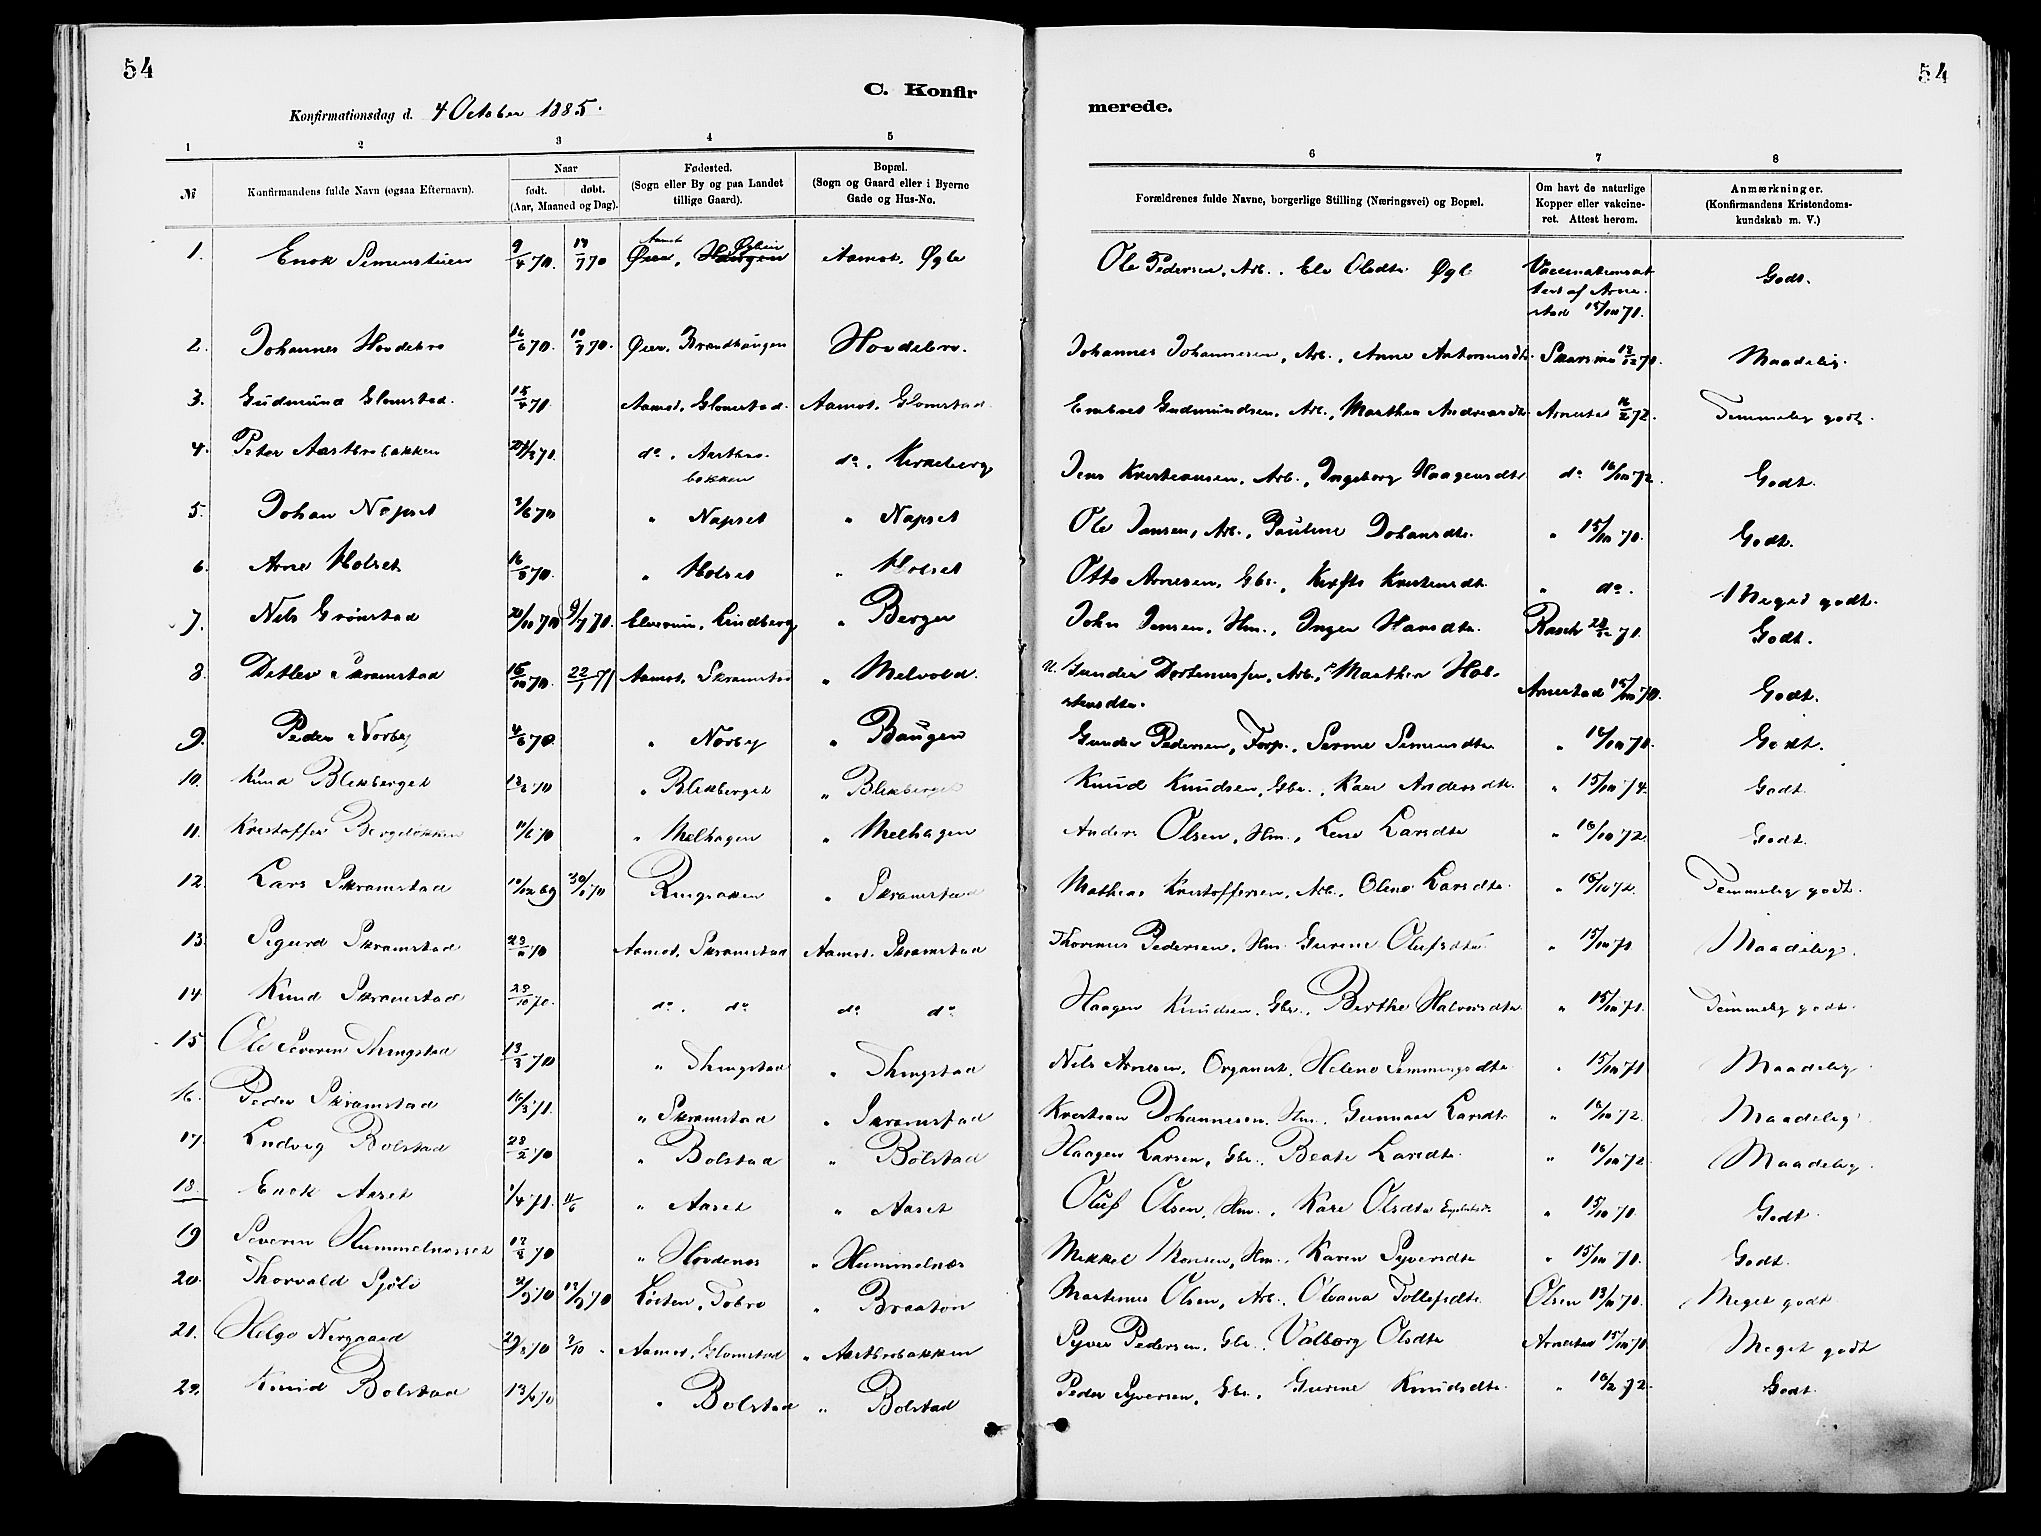 54
54
C. Konfir
merede.
Konfirmationsdag d. 4 October 1885.
1 2 3 4 5 6 7 8
№ Konfirmandens fulde Navn (ogsaa Efternavn). Naar født. døbt. (Aar, Maaned og Dag). Fødested. (Sogn eller By og paa Landet tillige Gaard). Bopæl. (Sogn og Gaard eller i Byerne Gade og Hus-No. Forældrenes fulde Navne, borgerlige Stilling (Næringsvei) og Bopæl. Om havt de naturlige Kopper eller vakcineret. Attest herom. Anmærkninger. (Konfirmandens Kristendomskundskab m. V.)
1. Enok Simenstuen 9/4 70. 17/7 70 Aamot Øgleen Aamot, Øgle Ole Pedersen, Arb. Øgle Vaccinationsattest af Arnestad 15/10 71. Godt.
2. Johannes Hovdebro 16/6 70. 10/7 70. Øier, Brandhaugen Hovdebro. Johannes Johannesen, Arb., Anne 12/12 70. Maadelig.
3. Gudmund Glomstad. 15/4 71. Aamot, Glomstad. Aamot, Glomstad Embret Gudmundsen, Arb., Marthea Andreasdtr Arnestad 16/2 72. Temmelig godt.
4. Peter Aastbrobakken do. Aastbrobakken do. Kirkeberg Jens Kristiansen, Arb., Ingeborg Haagensdtr do 16/10 72. Godt.
5. Johan Napset 3/6 70 " Napset " Napset Ole Jansen, Arb., Pauline Johansdtr. " 15/10 70. Godt.
6. Arne Holset 16/5 70. " Holset " Holset Otto Arnesen, Gbr., Kristensdtr " do. Meget godt.
7. Nils Grønstad 9/7 70. Elverum, Lindberg " Berger John Jensen, Hm., Inger Hansdtr. Rasch Godt.
8. Detlev Skramstad 16/10 70. 22/1 71 Aamot, Skramstad " Melvold. Gunder Arb., Marthea Holstensdtr. Arnestad 15/10 70. Godt.
9. Peder Norby 4/6 70. " Norby " Haugen Gunder Pedersen, Simensdtr " 16/10 70. Godt.
10. Knud Blekberget " Blekberget " Blekberget Knud Knudsen, Gbr., Kari Andersdtr. " 15/10 74. Godt.
11. Kristoffer Bergeløkken 11/6 70 " Melhagen " Melhagen Anders Olsen, Hm., Lene Larsdtr " 16/10 72. Godt.
12. Lars Skramstad 10/12 69 30/1 70 Ringsaker " Skramstad Mathias Kristoffersen, Arb., Olene Larsdtr. " 16/10 72. Temmelig godt.
13. Sigurd Skramstad Aamot, Skramstad Aamot, Skramstad Thorinus Pedersen, Hm. Gurine Olufsdtr " 15/10 71 Maadelig.
14. Knud Skramstad 28/10 70. do. do do do Haagen Knudsen, Gbr., Berthe Halvorsdtr " 15/10 71. Temmelig godt.
15. Ole Severin Thingstad 13/3 70 " Thingstad " Thingstad Nils Arnesen, Organist, Helene Semmingsdtr. " 15/10 71 Maadelig
16. Peder Skramstad 16/3 71. " Skramstad " Skramstad Kristian Johannesen, Hm., Gunnar Larsdtr " 16/10 72. Maadelig
17. Ludvig Bolstad 28/2 70 " Bolstad " Bolstad Haagen Larsen, Gbr., Beate Larsdtr. " 16/10 72. Maadelig
18. Enok Aaset 1/4 71. 11/6 " Aaset " Aaset Oluf Olsen, Hm., Kari Olsdtr " 15/10 70. Godt.
19 Severin Hummelnesset 12/3 70 " Hovdenes " Hummelnæs Mikkel Monsen, Hm., Karen Syversdtr " 15/10 70. Godt.
20. Thorvald Sjøli Løiten, Tobro " Braaten Martinus Olsen, Arb., Oleana Tollefsdtr Olsen 13/10 70. Meget godt
21. Helge Nergaard 29/8 70 2/10 Aamot, Glomstad " Aastbrobakken Syver Pedersen, Gbr., Valborg Olsdtr Arnestad 15/10 71. Meget godt
22. Knud Bolstad 13/6 70 " Bolstad " Bolstad Peder Syversen, Gbr., Gurine Knudsdtr. " 16/2 72. Godt.